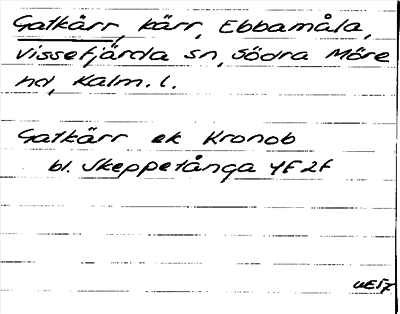 Gatkärr, kärr, Ebbamåla,
Vissefjärda sn, Södra Möre
hd, Kalm. l.
Gatkärr ek Kronob
bl. Skeppetånga 4F2f